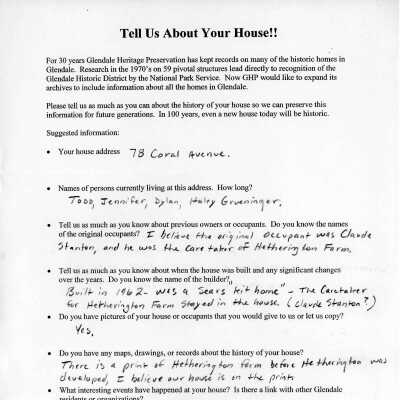 Tell Us About Your House!!
For 30 years Glendale Heritage Preservation has kept records on many of the historic homes in
Glendale. Research in the 1970's on 59 pivotal structures lead directly to recognition of the
Glendale Historic District by the National Park Service. Now GHP would like to expand its
archives to include information about all the homes in Glendale.
Please tell us as much as you can about the history of your house so we can preserve this
information for future generations. In 100 years, even a new house today will be historic.
Suggested information:
• Your house address 78 Coral Avenue.
• Names of persons currently living at this address. How long?
Todd, Jennifer, Dylan, Haley Grueninger.
• Tell us as much as you know about previous owners or occupants. Do you know the names
of the original occupants? I believe the original occupant was Claude
Stanton, and he was the caretaker of Hetherington Farm.
• Tell us as much as you know about when the house was built and any significant changes
over the years. Do you know the name of the builder?
Built in 1962 - was a "Sears kit home" - The Caretaker
for Hetherington Farm stayed in the house. (Claude Stanton?)
• Do you have pictures of your house or occupants that you would give to us or let us copy?
Yes.
• Do you have any maps, drawings, or records about the history of your house?
There is a print of Hetherington farm before Hetherington was
developed, I believe our house is on the print.
• What interesting events have happened at your house? Is there a link with other Glendale
residents or organizations?